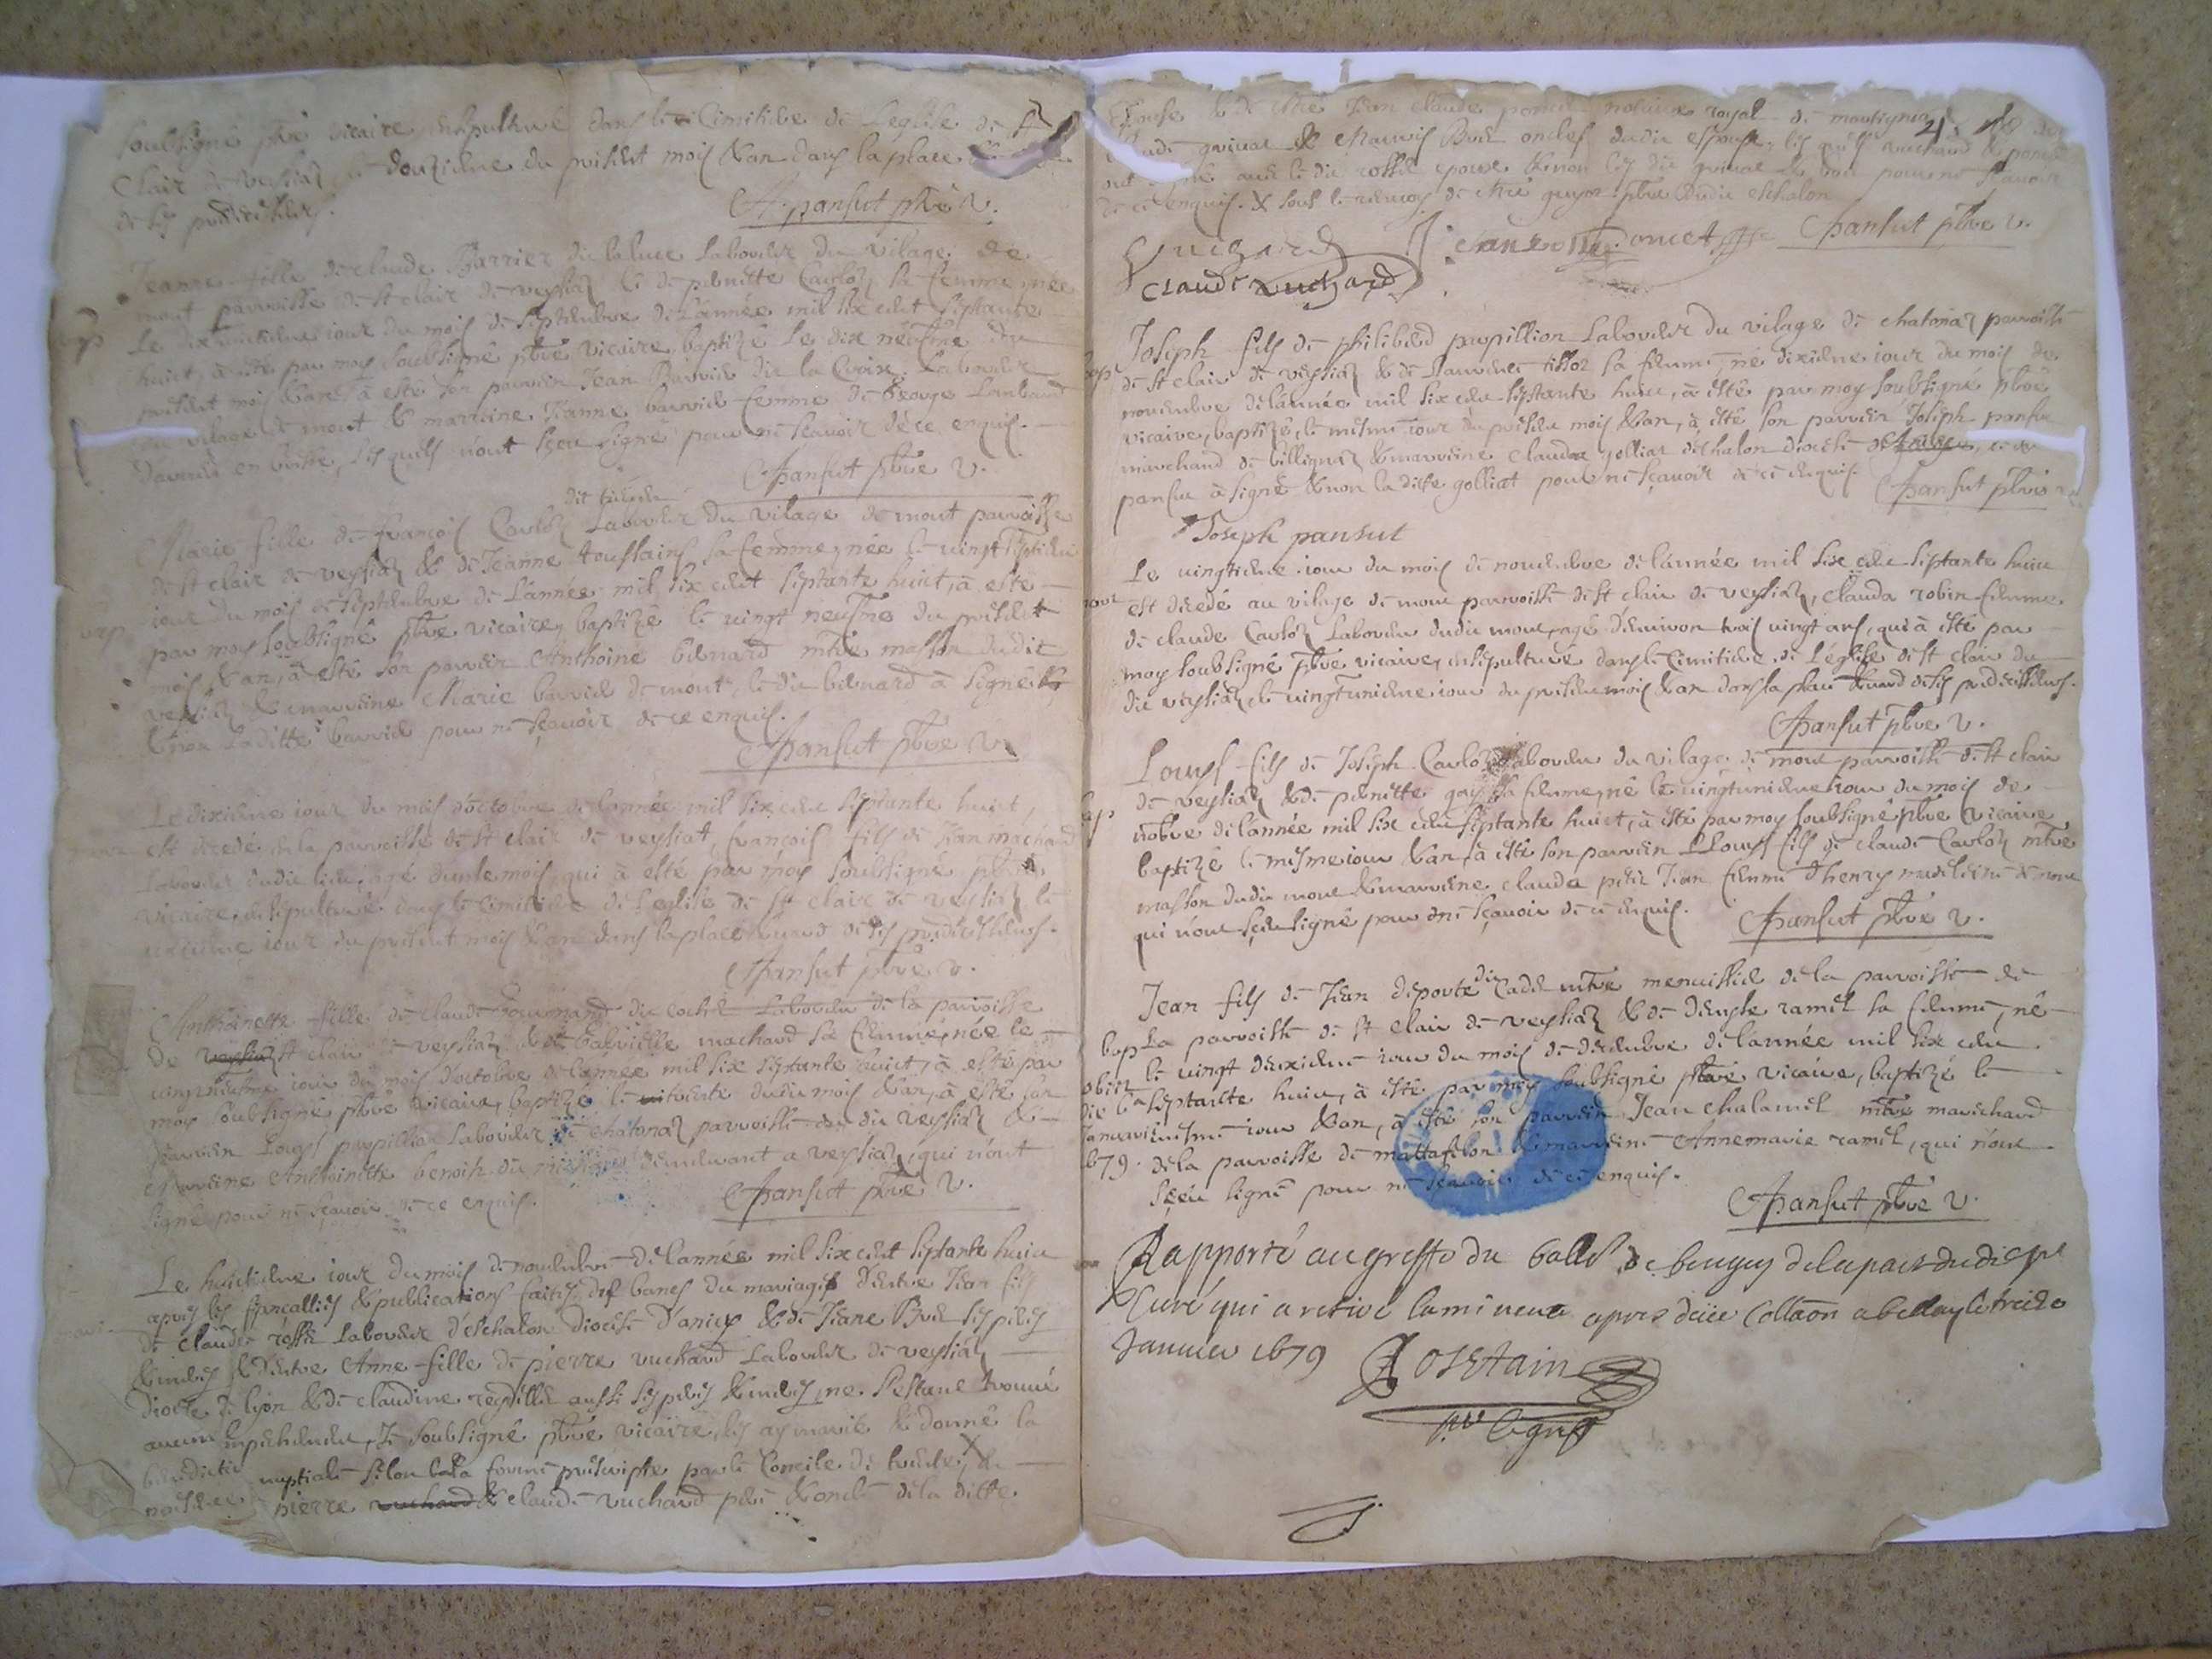 soubsigné pbre vicaire ensepulturé dans le Cimitiere de L'eglise de st
Clair de veysiaz, le douzieme du present mois & an dans la place
de ses predecesseurs.
A. pansut pbre v.
Jeanne fille de claude Barrier dit la luce Laboureur du vilage de
mont parroisse de st clair de veysiaz & de pernette Carloz sa femme, née
bap
Le dix huictieme iour du mois de septembre de L'année mil six cent septante
huict, à esté par moy soubsigné pbre vicaire, baptizé Le dix neufme du
present mois & an, à esté son parrein Jean Barrier dit la Croix Laboureur
du vilage de mont & marraine Jeanne barrier femme de George Lombard
en bresse, lesquels n'ont sceu signé pour ne sçavoir de ce enquis.
Pansut pbre v.
Marie fille de françois Carloz Laboureur du vilage de mont parroisse
de st clair de veysiaz & de Jeanne toussains sa femme, née le vingt septieme
bap
iour du mois de septembre de L'année mil six cent septante huict, à esté
par moy soubsigné pbre vicaire, baptizé le vingt neufme du present
mois & an, à esté son parrein Anthoine bernard mtre masson dudit
veysiaz & marreine Marie barrier de mont, le dit bernard à signé
& non laditte barrier pour ne sçavoir de ce enquis.
Pansut pbre v.
Le dixieme iour du mois d'octobre de lannée mil six cent septante huict,
est decedé de la parroisse de st clair de veysiat, françois fils de Jean machard
Laboureur dudit lieu, agé d'un mois, qui à esté par moy soubsigné pbre
vicaire, ensepulturé dans le Cimitiere de L'eglise de st clair de veysiaz le
unzieme iour du present mois & an dans la place & rand de ses predecesseurs.
Pansut pbre v.
Anthoinette fille de claude Gourmand dit cochet Laboureur de la parroisse
de st clair de veysiaz & de Gabrielle machard sa femme, née le
iour du mois d'octobre de l'année mil six septante huict, à esté par
moy soubsigné pbre vicaire, baptizé le trente dudit mois & an, à esté son
parrein Louys papillion Laboureur de chatonaz parroisse du dit veysiaz &
marreine Anthoinette benoit demeurant a veysiaz, qui n'ont
signé pour ne sçavoir de ce enquis.
Pansut pbre v.
Le huictieme iour du mois de novembre de lannée mil six cent septante huict
apres les fiancallies & publications faites des bancs du mariage d'entre Jean fils
de claude rosset Laboureur d'eschalon diocese d'anicy & de Jeane Bret ses peres
& meres & d'entre Anne fille de pierre vuchard Laboureur de veysiaz
diocese de lyon & de claudine reydellet aussi ses peres & meres, ne s'estant trouvé
aucun empechement, Je soubsigné pbre vicaire, les ay marié & donné la
benediction nuptiale selon la forme prescripte par le Concile de trente, en
presence de pierre & claude vuchard pere & oncle de la ditte
espouse & de Mtre Jean claude poncet notaire royal de martignaz
claude grivat & Mauris Bret oncles dudit espoux, les quels vuchard & poncet
ont signé avec le dit rosset epoux & non les dit grivat & bret pour ne sçavoir
de ce enquis. & sous le remis de Mre guyon pbre dudit eschalon
Vuchard
Jean rosset
Poncet
Pansut pbre v.
Claude vuchard
Joseph fils de philiberd papillion Laboureur du vilage de chatonaz parroisse
bap
de st clair de veysiaz & de Laurence tissot sa femme, né dixieme iour du mois de
novembre de lannée mil six cent septante huict, à esté par moy soubsigné pbre
vicaire, baptizé, le mesme iour du present mois & an, à esté son parrein Joseph pansut
marchand de billignaz & marreine claudaz golliat d'eschalon diocese de, le dit
pansut à signé & non la ditte golliat pour ne sçavoir de ce enquis.
Pansut pbre v.
Joseph pansut
Le vingtieme iour du mois de novembre de lannée mil six cent septante huict
est decedé au vilage de mont parroisse de st clair de veysiaz, clauda robin femme
de claude Carloz Laboureur dudit mont, agé d'environ trois vingt ans, qui à esté par
moy soubsigné pbre vicaire, ensepulturé dans le Cimitiere de L'église de st clair du
dit veysiaz, le vingtunieme iour du present mois & an dans la place & rand de ses predecesseurs.
Pansut pbre v.
Louys fils de Joseph Carloz Laboureur du vilage de mont parroisse de st clair
de veysiaz & de pernette gay sa femme, né le vingtunieme iour du mois de
bap
nobre de lannée mil six cent septante huict, à esté par moy soubsigné pbre vicaire
baptizé le mesme iour & an, à esté son parrein Louys fils de claude Carloz mtre
masson dudit mont & marreine clauda petit Jean femme d'henry de mont
qui n'ont sceu signé pour ne sçavoir de ce enquis.
Pansut pbre v.
Jean fils de Jean deporte dit Cadet mtre menuissier de la parroisse de
bap
La parroisse de st clair de veysiaz & de denyse ramel sa femme, né
obiit
le vingt deuxieme iour du mois de decembre de lannée mil six cent
die 6a
septante huict, à esté par moy soubsigné pbre vicaire, baptizé le
Januarii
mesme iour & an, à esté son parrein Jean chalamel mtre mareschard
1679.
de la parroisse de mattafelon & marreine Annemarie ramel, qui n'ont
sceu signé pour ne sçavoir de ce enquis.
Pansut pbre v.
Rapporté au greffe du balle de beugey de la part dudit sr
Curé qui a retiré la minute apres deüe Collaon a belley le treize
Janvier 1679
Rostain